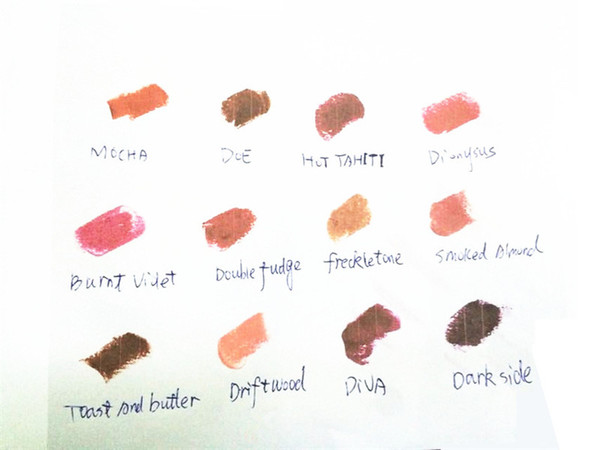 MOCHA DOE HOT TAHITI Dionysus
Burnt Violet Double fudge freckletone Smoked Almond
Toast And butter Driftwood DiVA Dark side